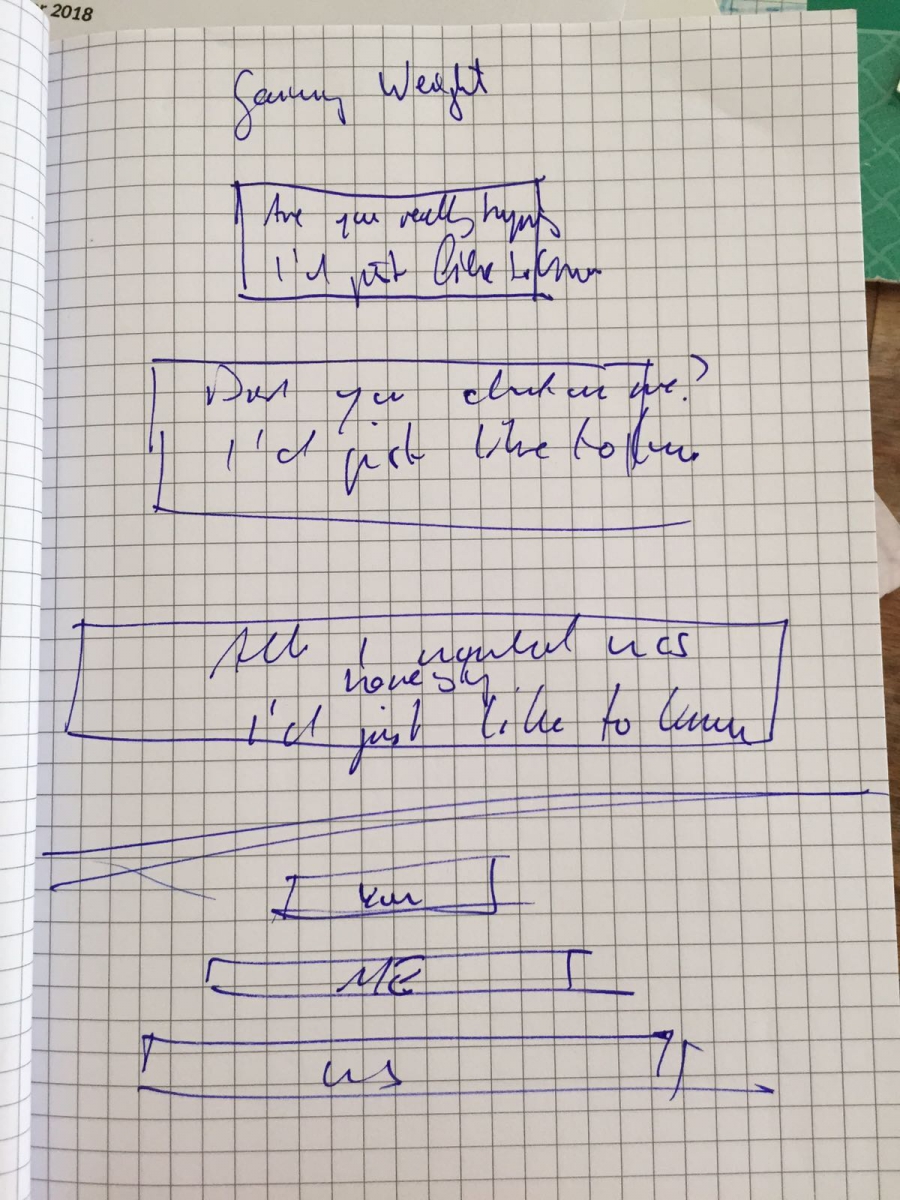 2018
Gaining Weight
Are you really happy
I'd just like to know
Did you cheat on me?
I'd just like to know.
All I wanted was
honesty
I'd just like to know
You
ME
us